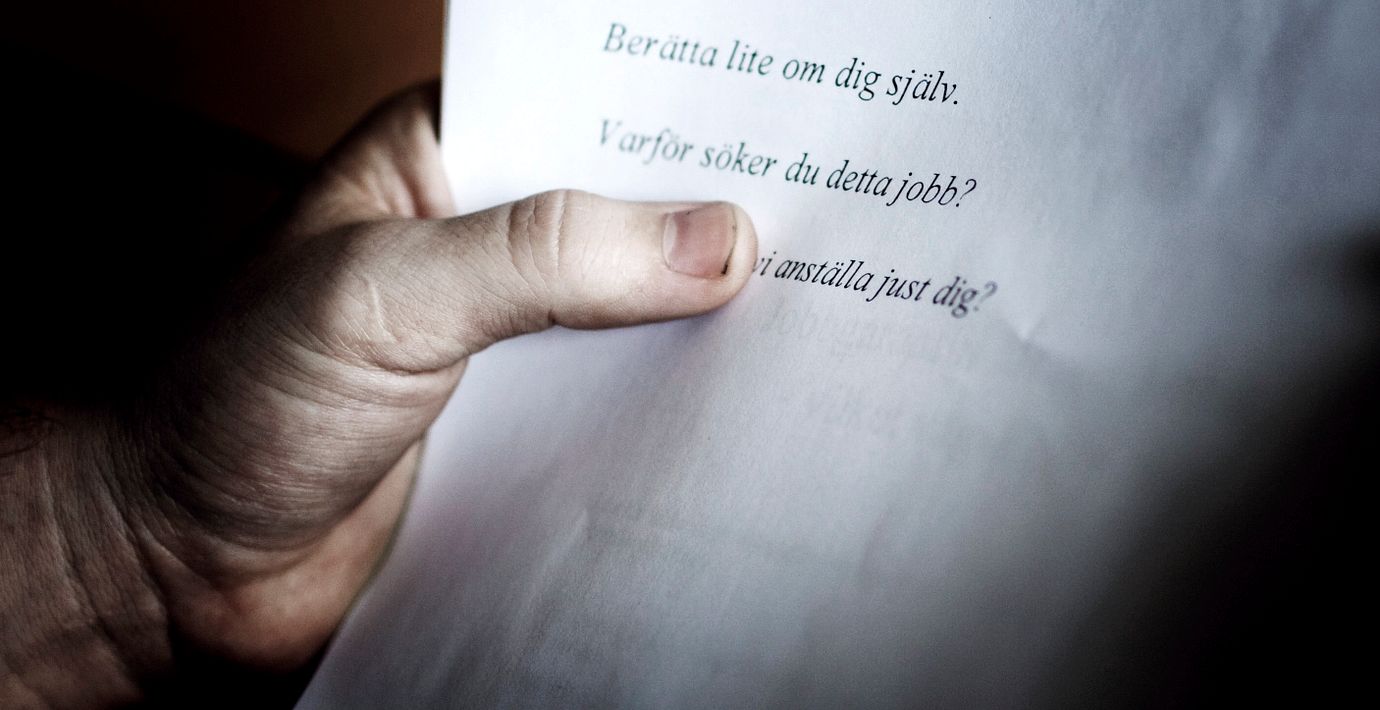 Berätta lite om dig själv.
Varför söker du detta jobb?
vi anställa just dig?